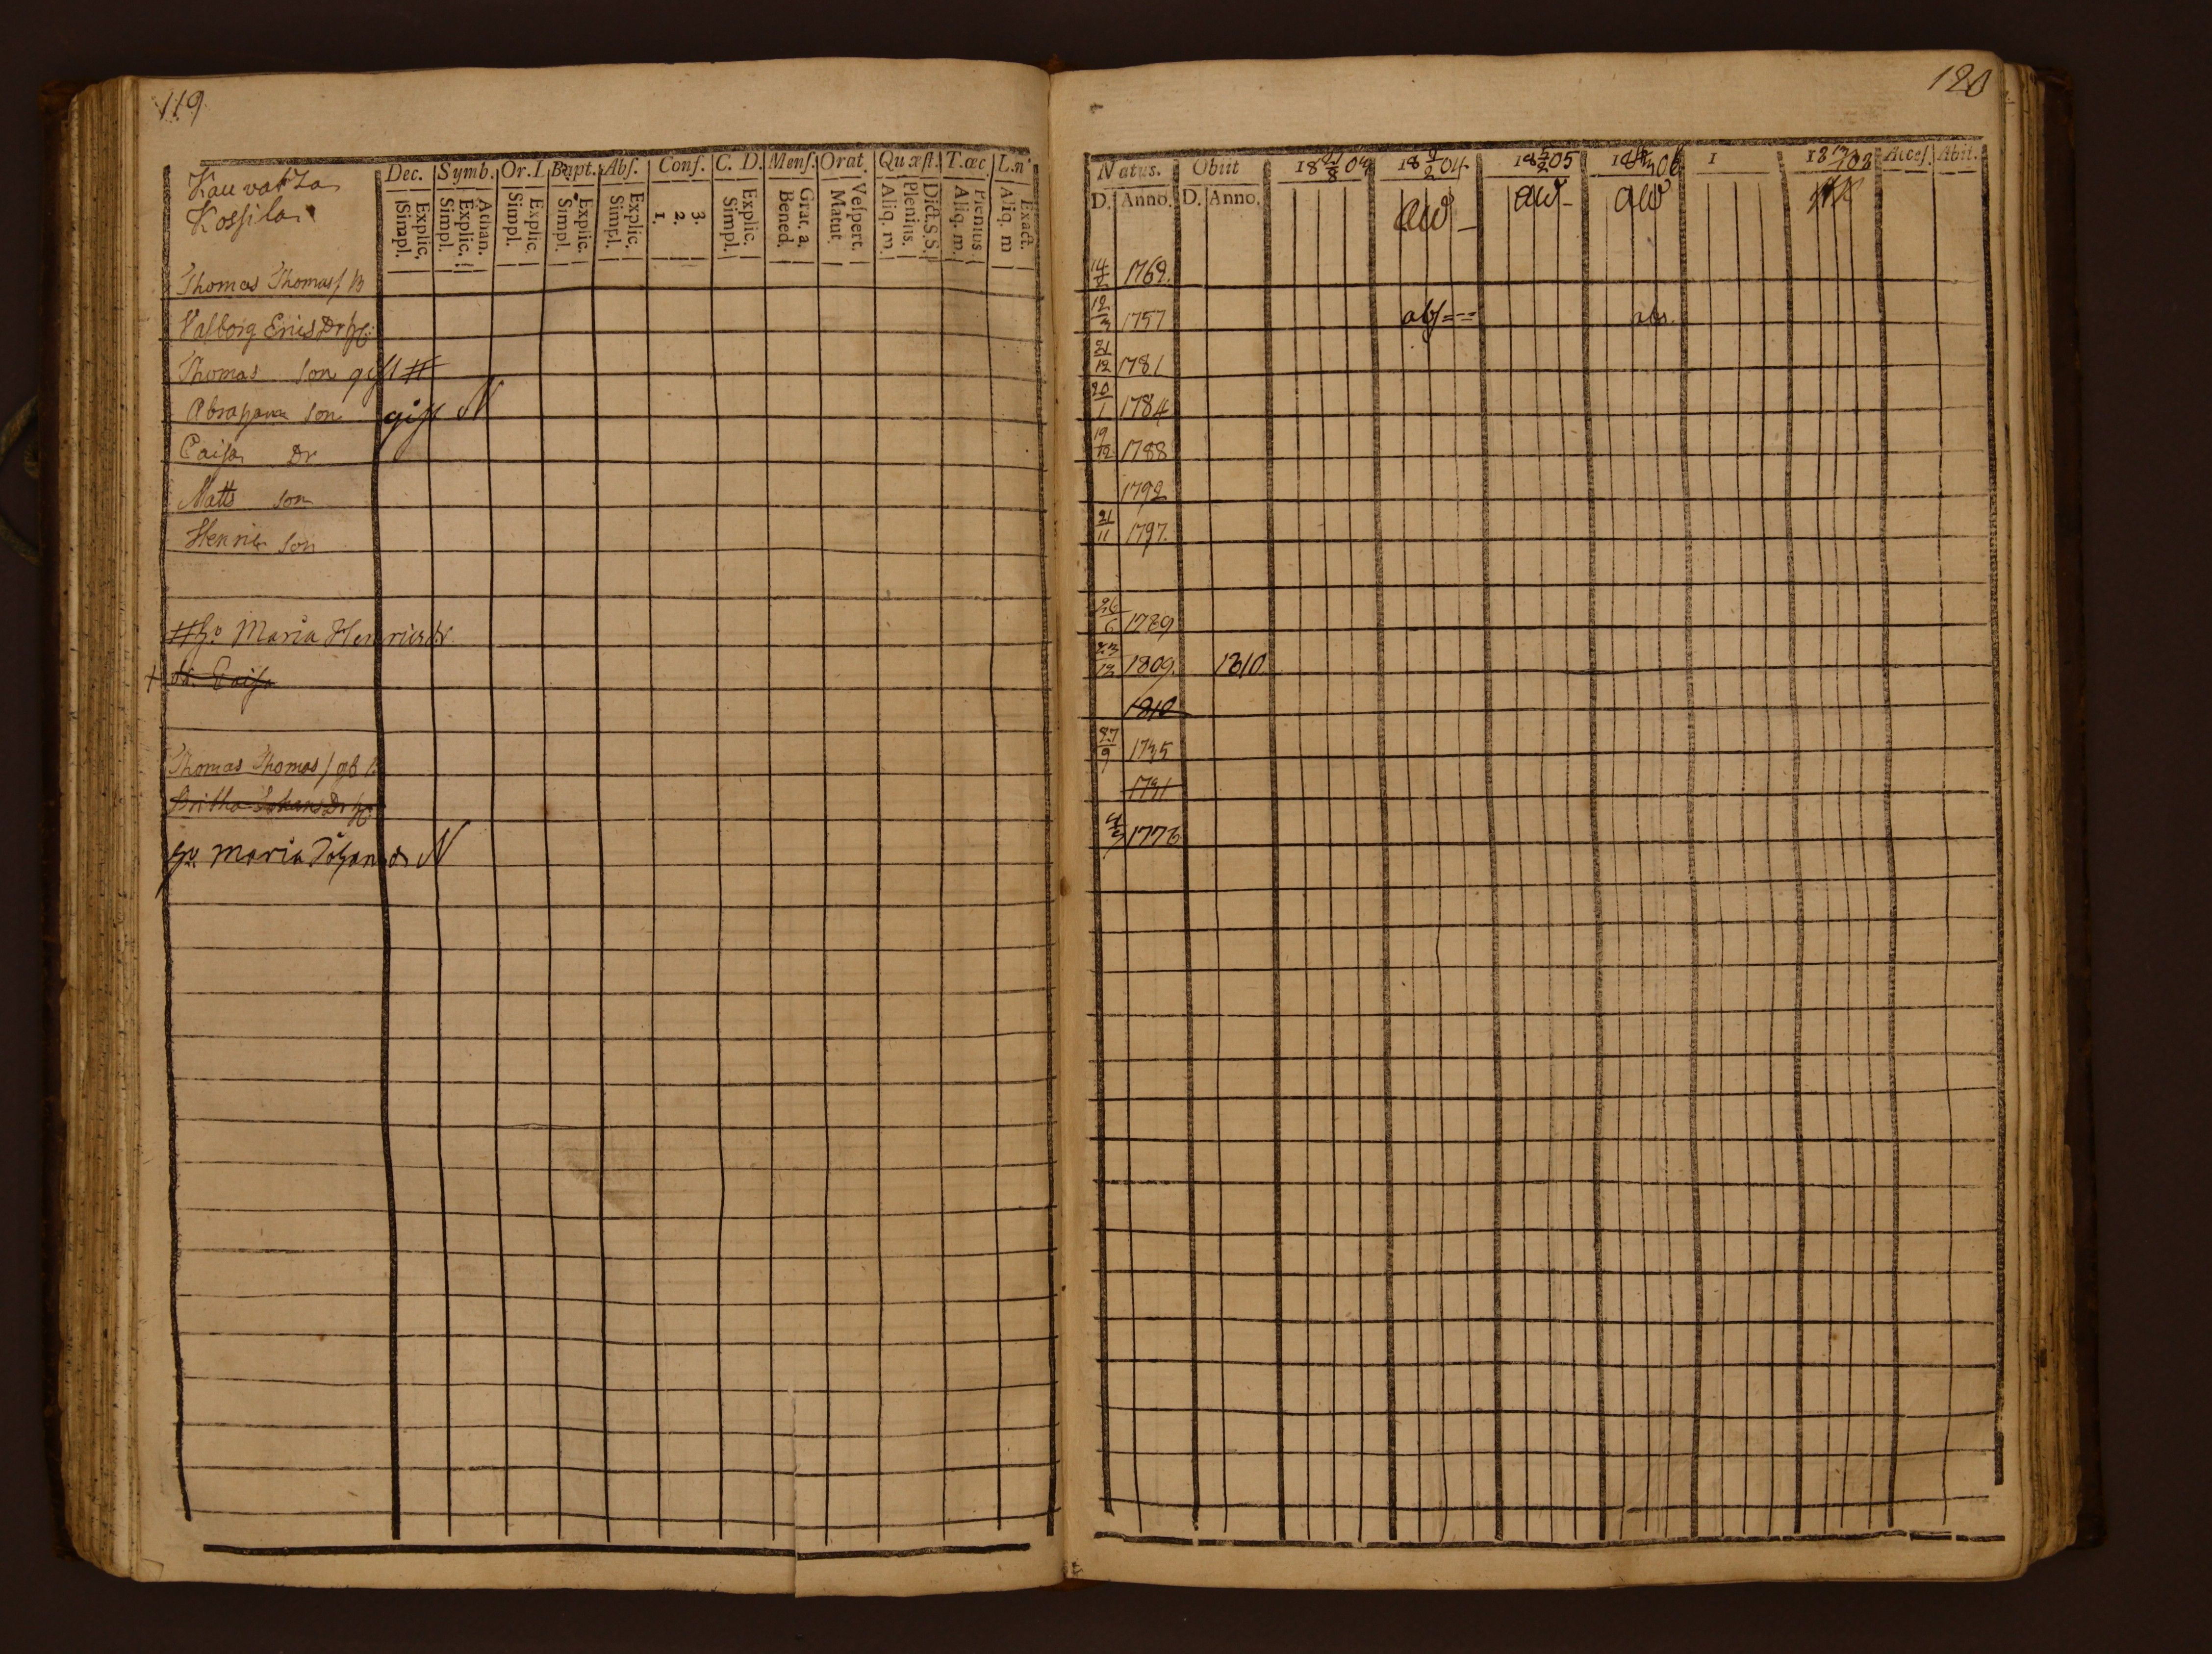 119
Kauvatza
Kossila
Dec. Symb. Or. D. Bapt. Abs. Conf. C. D. Mens. Orat. Quæst. T. œc. L. n
Explic. Simpl. Athan. Explic. Simpl. Explic. Simpl. Explic. Simpl. Explic. Simpl. 3. 2. 1. Explic. Simpl. Grat. a. Bened. Vespert. Matut. Dict. S. S. Plenius. Aliq. m. Plenius. Aliq. m. Exact. Aliq. m
Thomas Thomass B
Valborg Erics Dr h:
Thomas son gift #
Abraham son gift N
Caisa Dr
Matts son
Henric son
# h:o Maria Henricsdr
+ dr. Caisa
Thomas Thomass gb
Britha Johans Dr h:
hu Maria Johans dr N
120
Natus. Obiit 18 04 18 9/2 04 18 5/2 05 18 06 1 18 08 Acces. Abit.
D. Anno. D. Anno.
aw aw aw
1762.
12/3 1757 abs abs.
21/12 1781
20/1 1784
19/12 1788
1792
21/11 1797.
26/6 1789
23/12 1809. 1810.
1810
27/9 1735
1731
1776